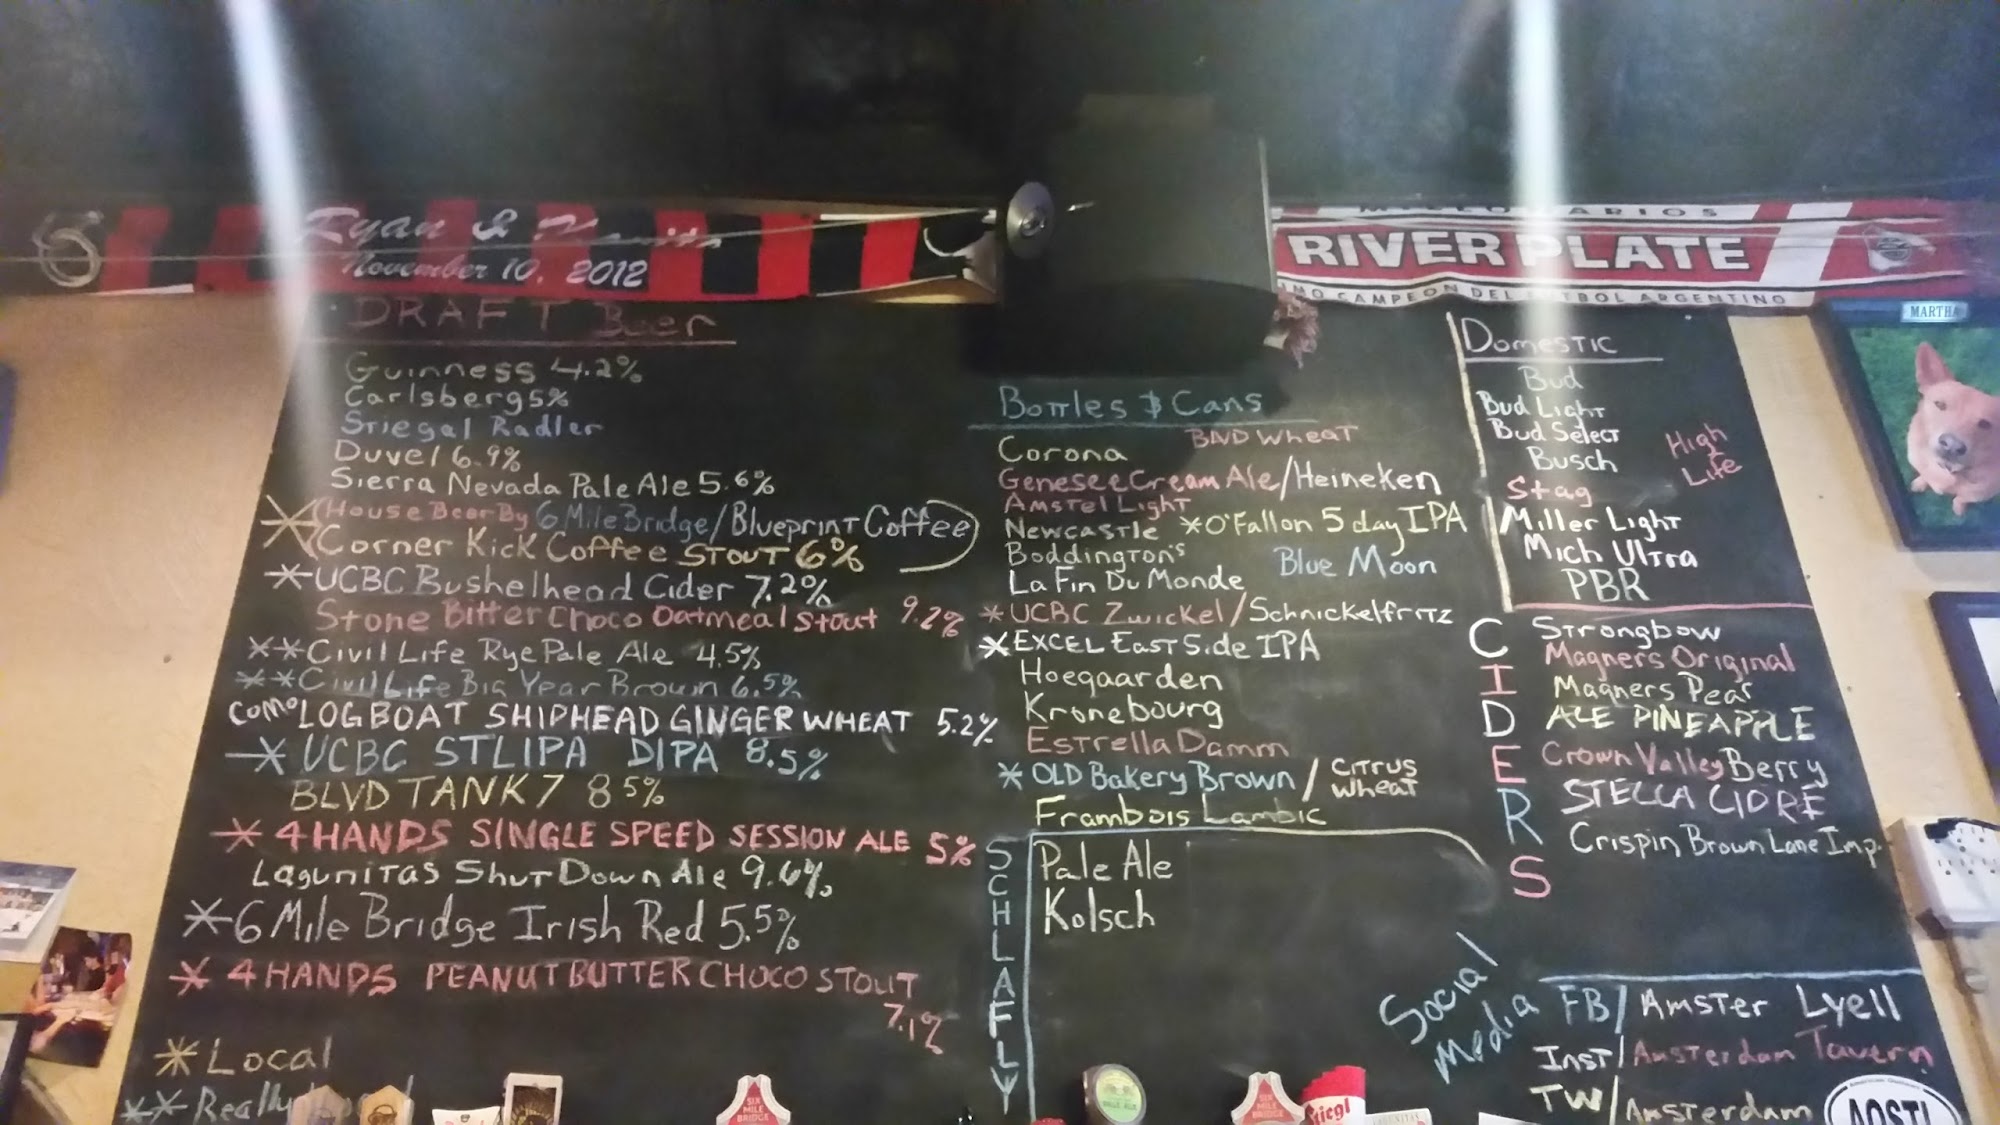 Ryan &
November 10, 2012
RIVER PLATE
CAMPEON DEL FUTBOL ARGENTINO
MARTHA
DRAFT Beer
Guinness 4.2%
Carlsberg 5%
Stiegal Radler
Duvel 6.9%
Sierra Nevada Pale Ale 5.6%
*(House Beer By 6 Mile Bridge/Blueprint Coffee)
Corner Kick Coffee Stout 6%
*UCBC Bushelhead Cider 7.2%
Stone Bitter Choco Oatmeal Stout 9.2%
**Civil Life Rye Pale Ale 4.5%
**Civil Life Big Year Brown 6.5%
COMO LOGBOAT SHIPHEAD GINGER WHEAT 5.2%
*UCBC STLIPA DIPA 8.5%
BLVD TANK 7 8.5%
*4 HANDS SINGLE SPEED SESSION ALE 5%
Lagunitas Shut Down Ale 9.6%
*6 Mile Bridge Irish Red 5.5%
*4 HANDS PEANUT BUTTER CHOCO STOUT
7.1%
*Local
**Really
Bottles & Cans
BLVD Wheat
Corona
Genesee Cream Ale/Heineken
Amstel Light
Newcastle *O'Fallon 5 day IPA
Boddington's
Blue Moon
La Fin Du Monde
*UCBC Zwickel/Schnickelfritz
*EXCEL East Side IPA
Hoegaarden
Kronebourg
Estrella Damm
*OLD Bakery Brown / Citrus Wheat
Frambois Lambic
SCHLAFLY
Pale Ale
Kolsch
Domestic
Bud
Bud Light
Bud Select
Busch
High Life
Stag
Miller Light
Mich Ultra
PBR
CIDERS
Strongbow
Magners Original
Magners Pear
ALE PINEAPPLE
Crown Valley Berry
STELLA CIDRE
Crispin Brown Lane Imp.
Social Media
FB/ Amster Lyell
Inst/ Amsterdam Tavern
TW/ Amsterdam
SIX MILE BRIDGE
PALE ALE
SIX MILE BRIDGE
iegl
AOSTL